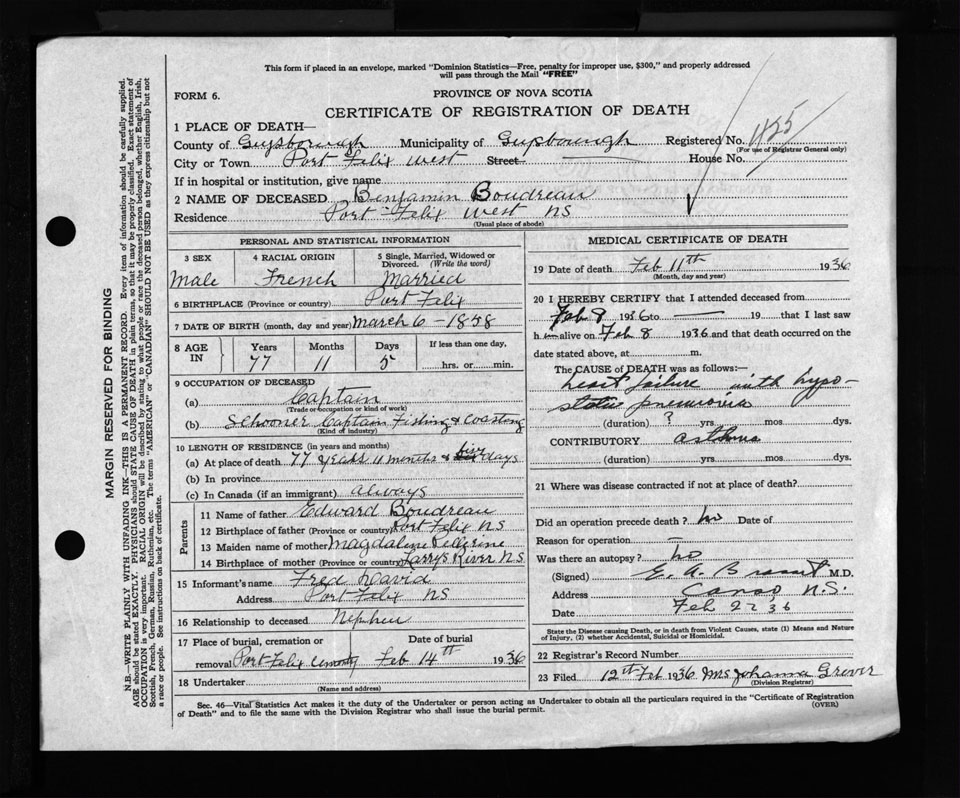 This form if placed in an envelope, marked "Dominion Statistics—Free, penalty for improper use, $300," and properly addressed
will pass through the Mail "FREE"
FORM 6.
PROVINCE OF NOVA SCOTIA
CERTIFICATE OF REGISTRATION OF DEATH
1 PLACE OF DEATH—
County of Guysborough Municipality of Guysborough Registered No. 1425
(For use of Registrar General only)
City or Town Port Felix West Street House No.
If in hospital or institution, give name
2 NAME OF DECEASED Benjamin Boudreau
Residence Port Felix West NS
(Usual place of abode)
PERSONAL AND STATISTICAL INFORMATION
3 SEX 4 RACIAL ORIGIN 5 Single, Married, Widowed or Divorced. (Write the word)
Male French Married
6 BIRTHPLACE (Province or country) Port Felix
7 DATE OF BIRTH (month, day and year) March 6 - 1858
8 AGE IN Years Months Days If less than one day,
77 11 5 hrs. or min.
9 OCCUPATION OF DECEASED
(a) Captain
(Trade or occupation or kind of work)
(b) Schooner Captain Fishing & Coasting
(Kind of industry)
10 LENGTH OF RESIDENCE (in years and months)
(a) At place of death 77 years 11 months & five days
(b) In province
(c) In Canada (if an immigrant) always
Parents
11 Name of father Edward Boudreau
12 Birthplace of father (Province or country) Port Felix NS
13 Maiden name of mother Magdalene Pellerine
14 Birthplace of mother (Province or country) Larrys River NS
15 Informant's name Fred David
Address Port Felix NS
16 Relationship to deceased Nephew
17 Place of burial, cremation or Date of burial
removal Port Felix Feb 14th 1936
18 Undertaker
(Name and address)
MEDICAL CERTIFICATE OF DEATH
19 Date of death Feb 11th 1936
(Month, day and year)
20 I HEREBY CERTIFY that I attended deceased from
Feb 8 1936 to — 19 that I last saw
h im alive on Feb 8 1936 and that death occurred on the
date stated above, at m.
The CAUSE of DEATH was as follows:—
heart failure with hypo-
static pneumonia
(duration) ? yrs. mos. dys.
CONTRIBUTORY asthma
(duration) yrs mos. dys.
21 Where was disease contracted if not at place of death?
Did an operation precede death? No Date of
Reason for operation —
Was there an autopsy? no
(Signed) E. A. M.D.
Address Canso N.S.
Date Feb 22 36
State the Disease causing Death, or in death from Violent Causes, state (1) Means and Nature
of Injury, (2) whether Accidental, Suicidal or Homicidal.
22 Registrar's Record Number
23 Filed 12th Feb 1936 Mrs Johanna Grover
(Division Registrar)
Sec. 46—Vital Statistics Act makes it the duty of the Undertaker or person acting as Undertaker to obtain all the particulars required in the "Certificate of Registration
of Death" and to file the same with the Division Registrar who shall issue the burial permit.
(OVER)
MARGIN RESERVED FOR BINDING
N.B.—WRITE PLAINLY WITH UNFADING INK—THIS IS A PERMANENT RECORD. Every item of information should be carefully supplied.
AGE should be stated EXACTLY. PHYSICIANS should STATE CAUSE OF DEATH in plain terms, so that it may be properly classified. Exact statement of
OCCUPATION is very important. RACIAL ORIGIN will be described by stating to what people or race the deceased person belonged, whether English, Irish,
Scottish, French, German, Russian, Ruthenian, etc. The terms "AMERICAN" or "CANADIAN" SHOULD NOT BE USED as they express citizenship but not
a race or people. See instructions on back of certificate.